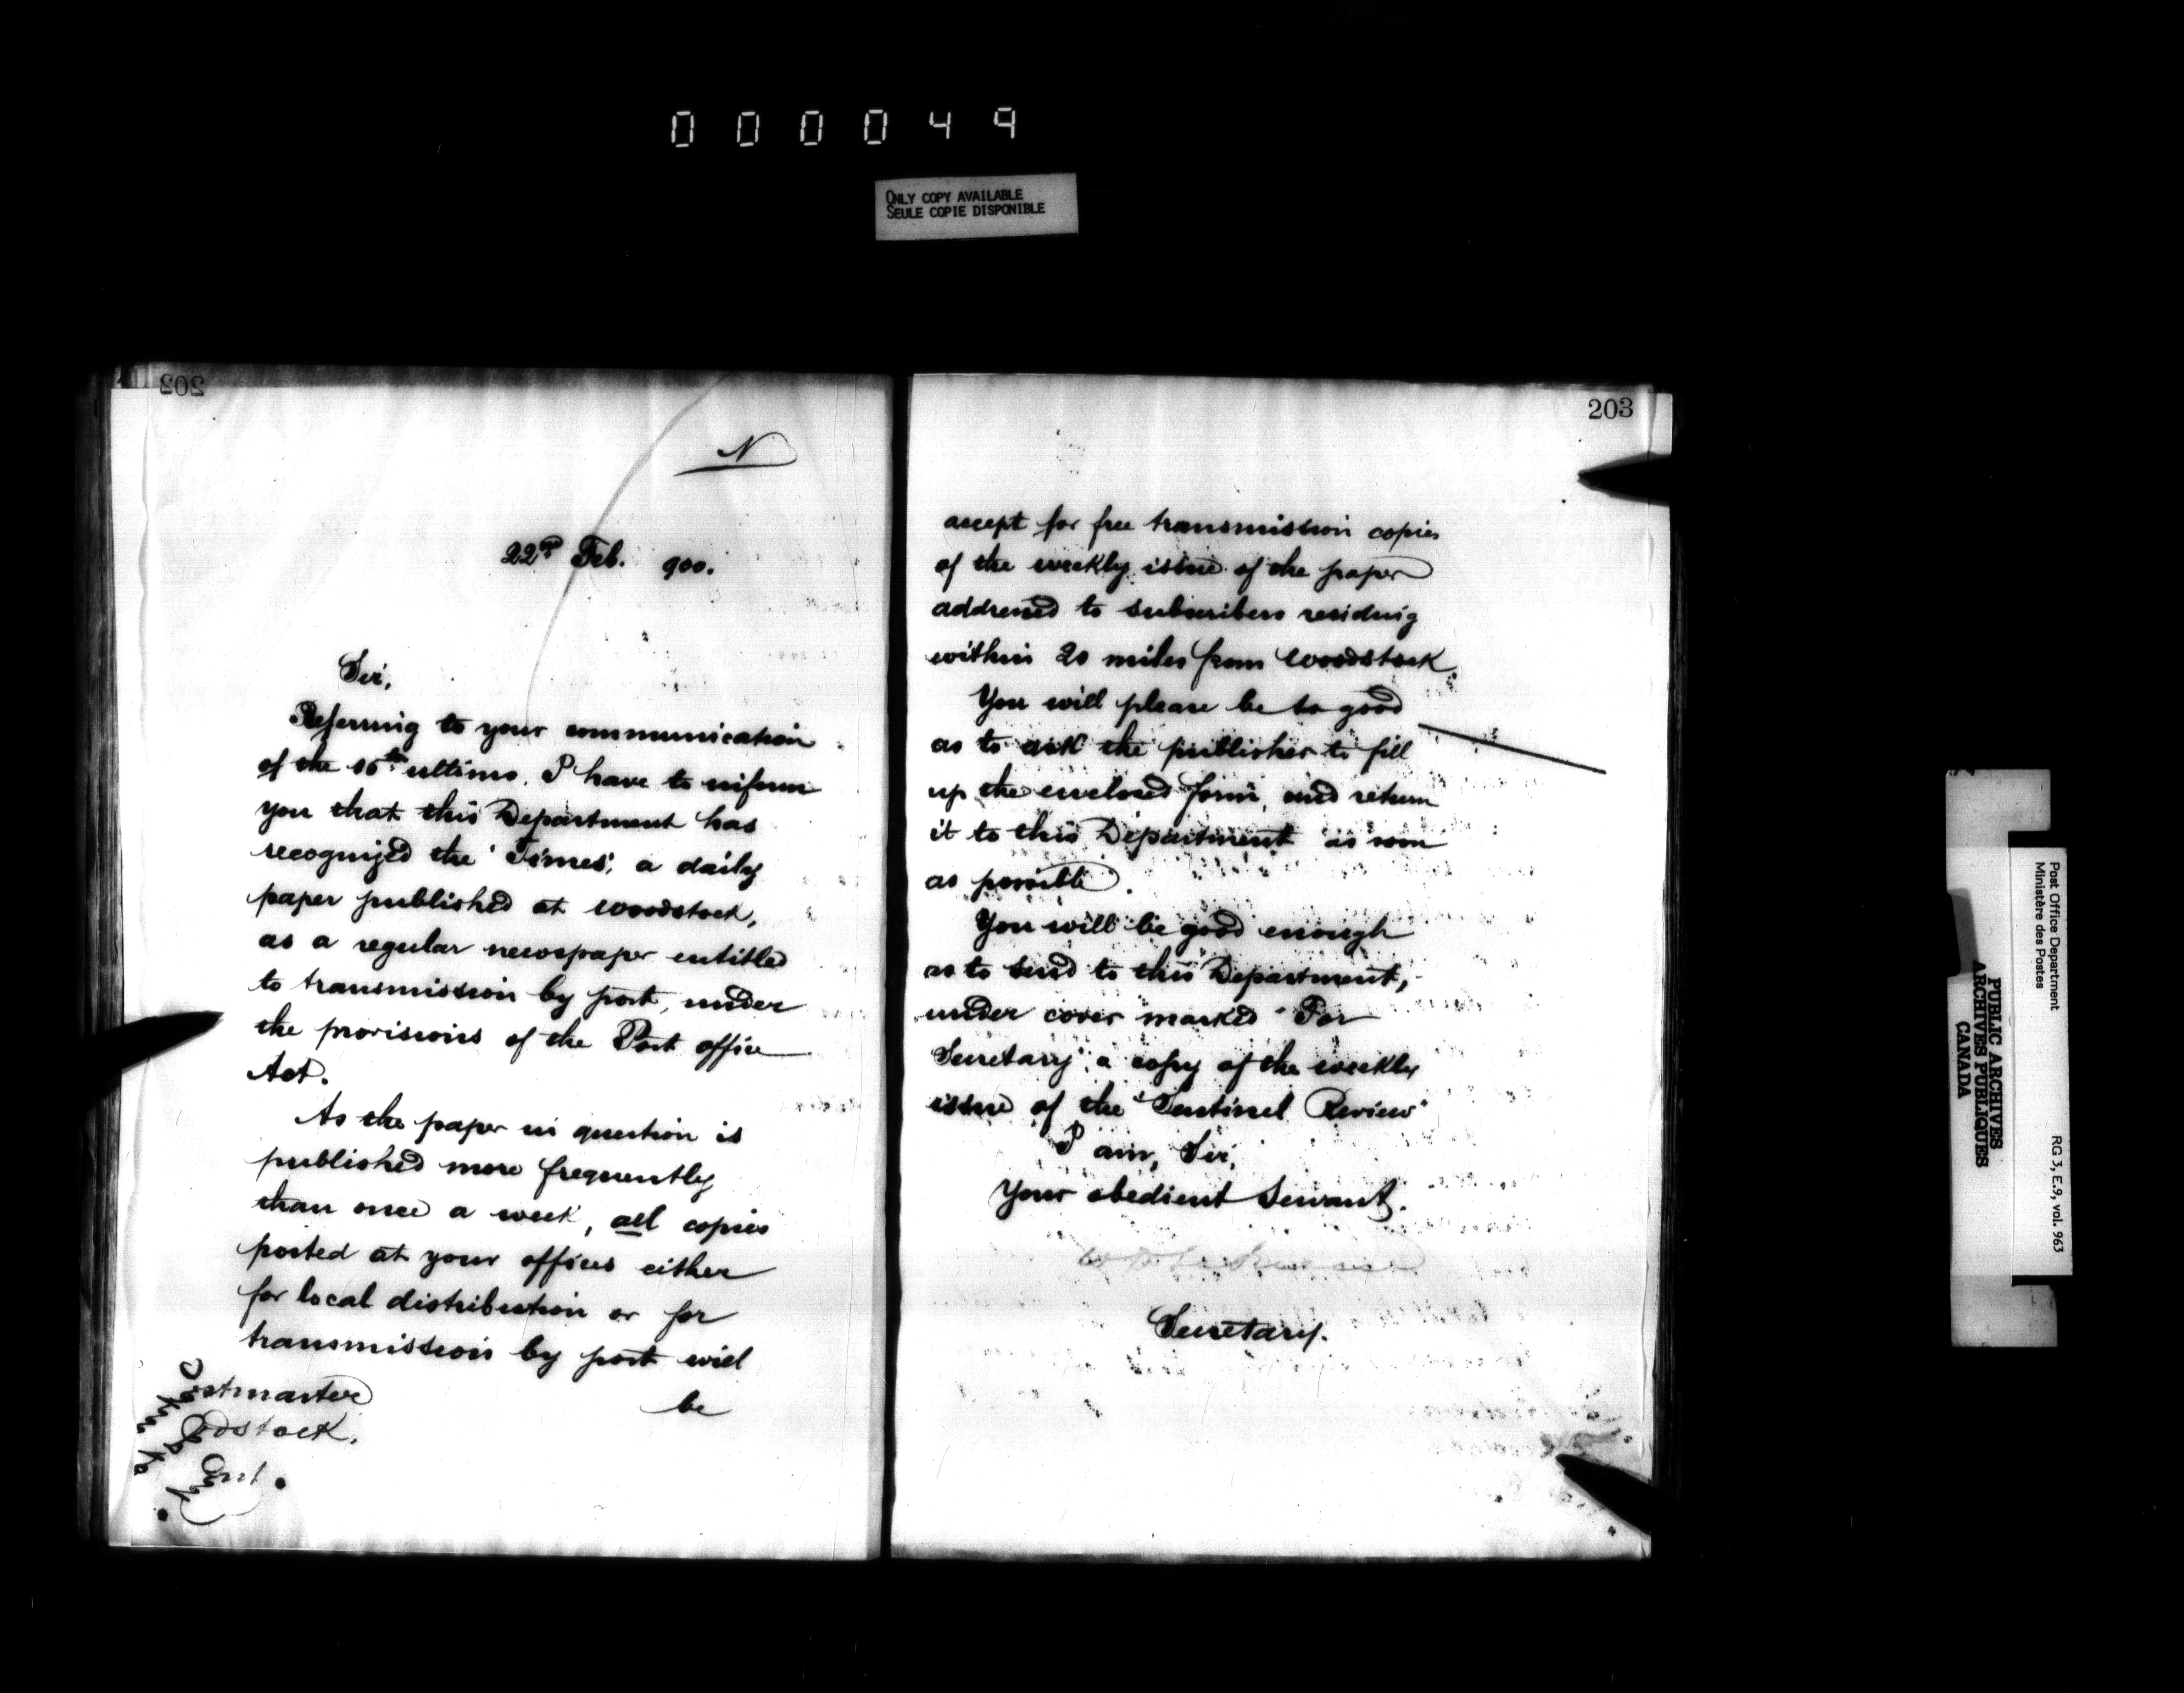 000049
ONLY COPY AVAILABLE
SEULE COPIE DISPONIBLE
202
N
22nd Feb. 900.
Sir,
Referring to your communication
of the 16th ultimo, I have to inform
you that this Department has
recognized the 'Times', a daily
paper published at Woodstock,
as a regular newspaper entitled
to transmission by post, under
the provisions of the Post office
Act.
As the paper in question is
published more frequently
than once a week, all copies
posted at your offices either
for local distribution or for
transmission by post will
be
ostmaster
odstock,
Ont.
203
accept for free transmission copies
of the weekly issue of the paper
addressed to subscribers residing
within 20 miles from Woodstock.
You will please be so good
as to ask the publisher to fill
up the enclosed form, and return
it to this Department as soon
as possible.
You will be good enough
as to send to this Department,
under cover marked "For
Secretary", a copy of the weekly
issue of the "Sentinel Review"
I am, Sir,
Your obedient Servant.
Secretary.
Post Office Department
Ministère des Postes
RG 3, E.9, vol. 963
PUBLIC ARCHIVES
ARCHIVES PUBLIQUES
CANADA